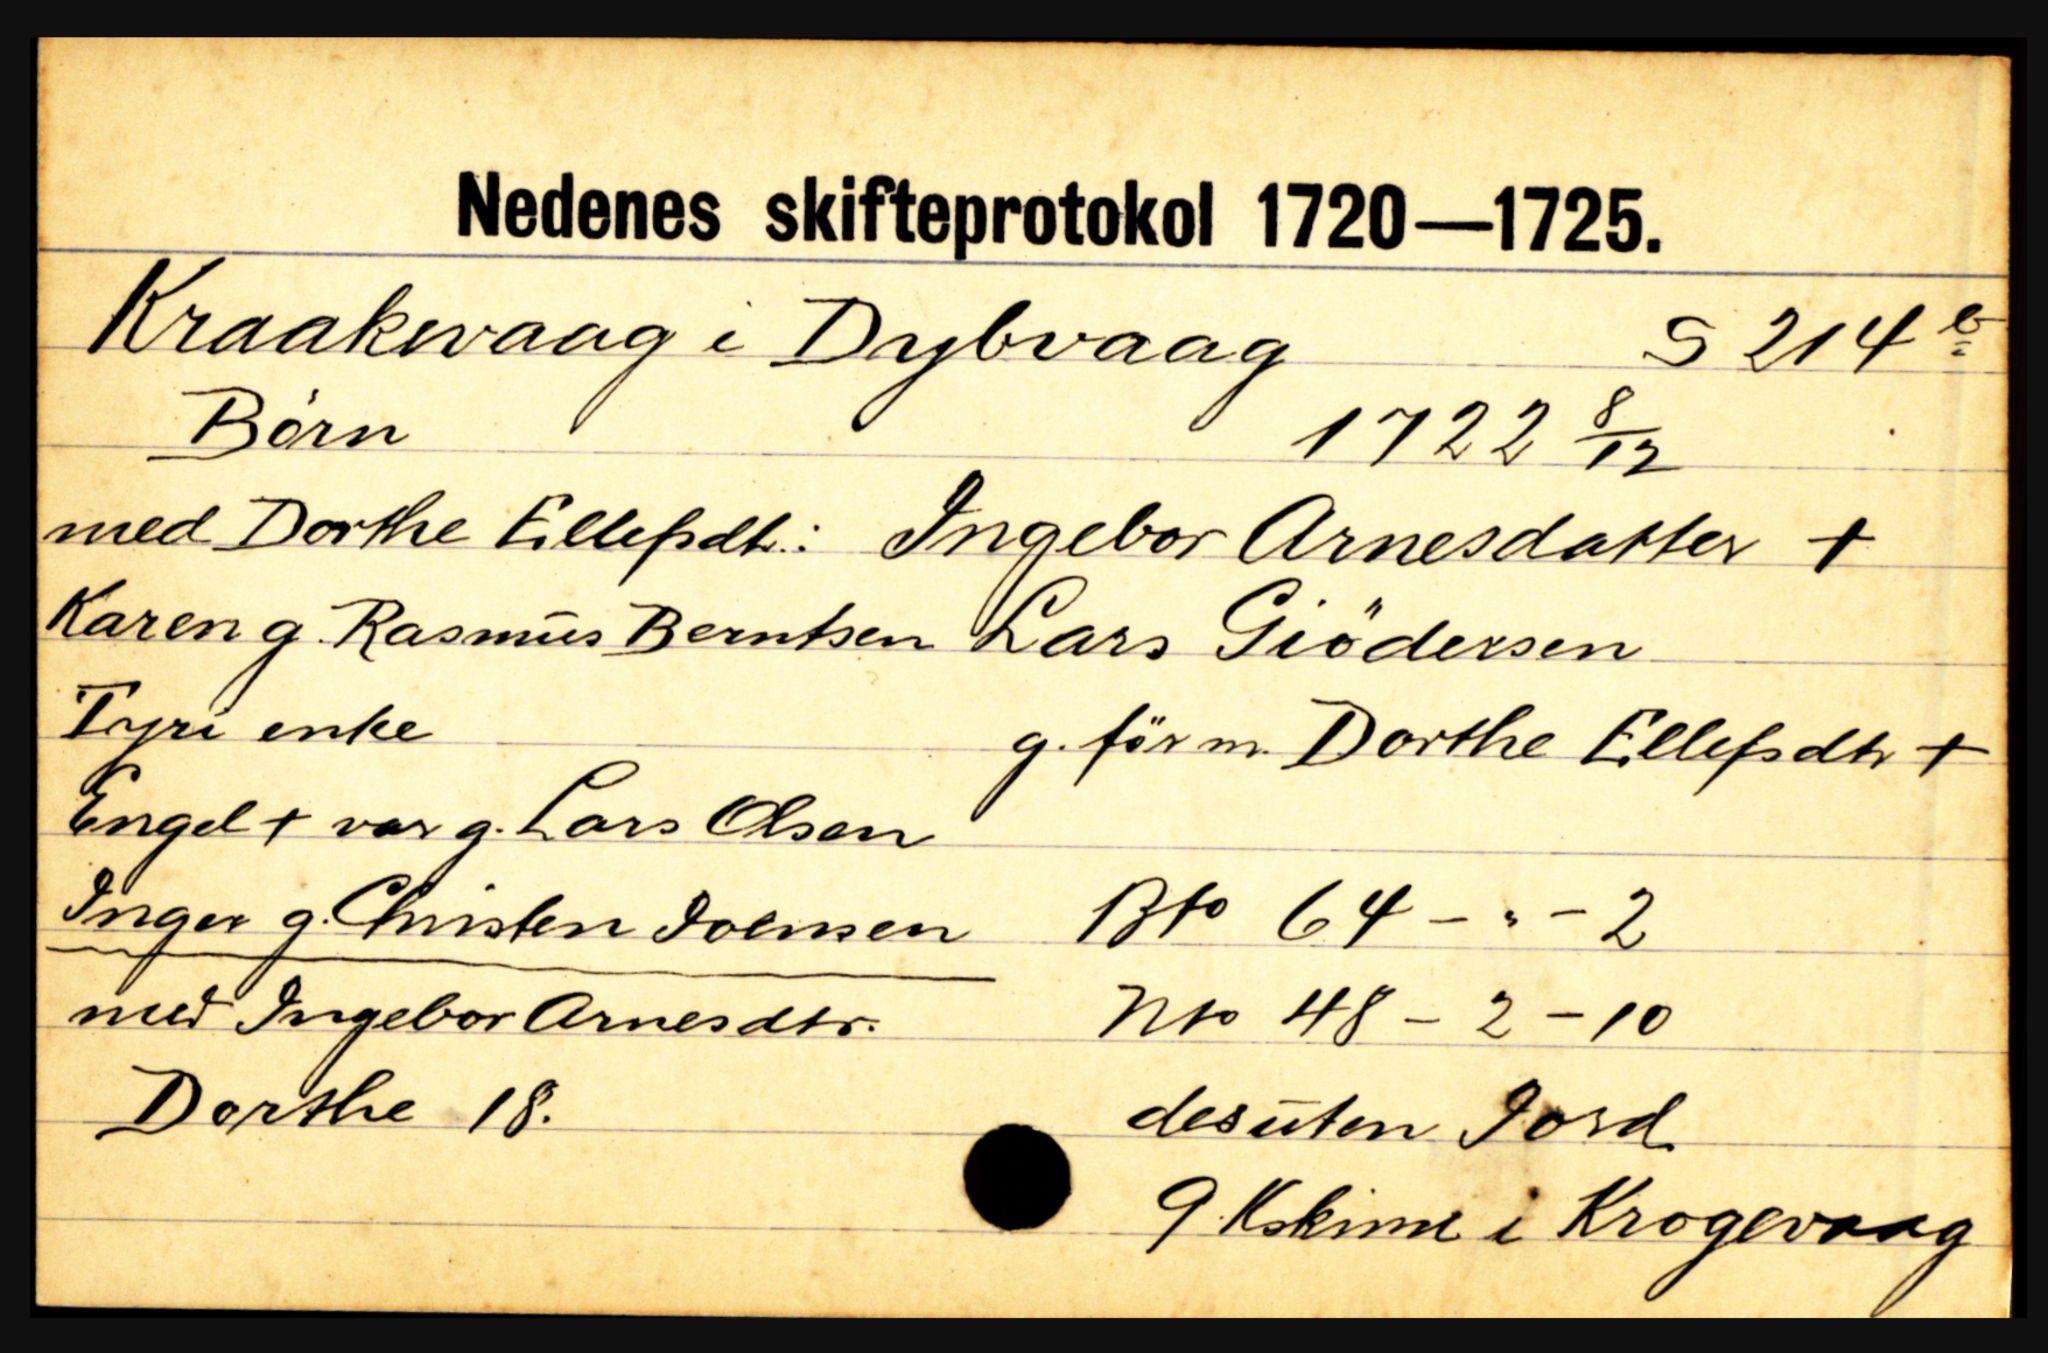 Nedenes skifteprotokol 1720—1725.
Kraakevaag i Dybvaag S 214 b
Börn 1722 8/12
med Dorthe Ellefsdtr.: Ingebor Arnesdatter +
Karen g. Rasmus Berntsen Lars Giödersen
Tyri enke g. för m. Dorthe Ellefsdtr +
Engel + var g. Lars Olsen
Inger g. Christen Joensen Bto 64 - " - 2
med Ingebor Arnesdtr. Nto 48 - 2 - 10
Dorthe 18. desuten Jord
9 Kskind i Krogevaag